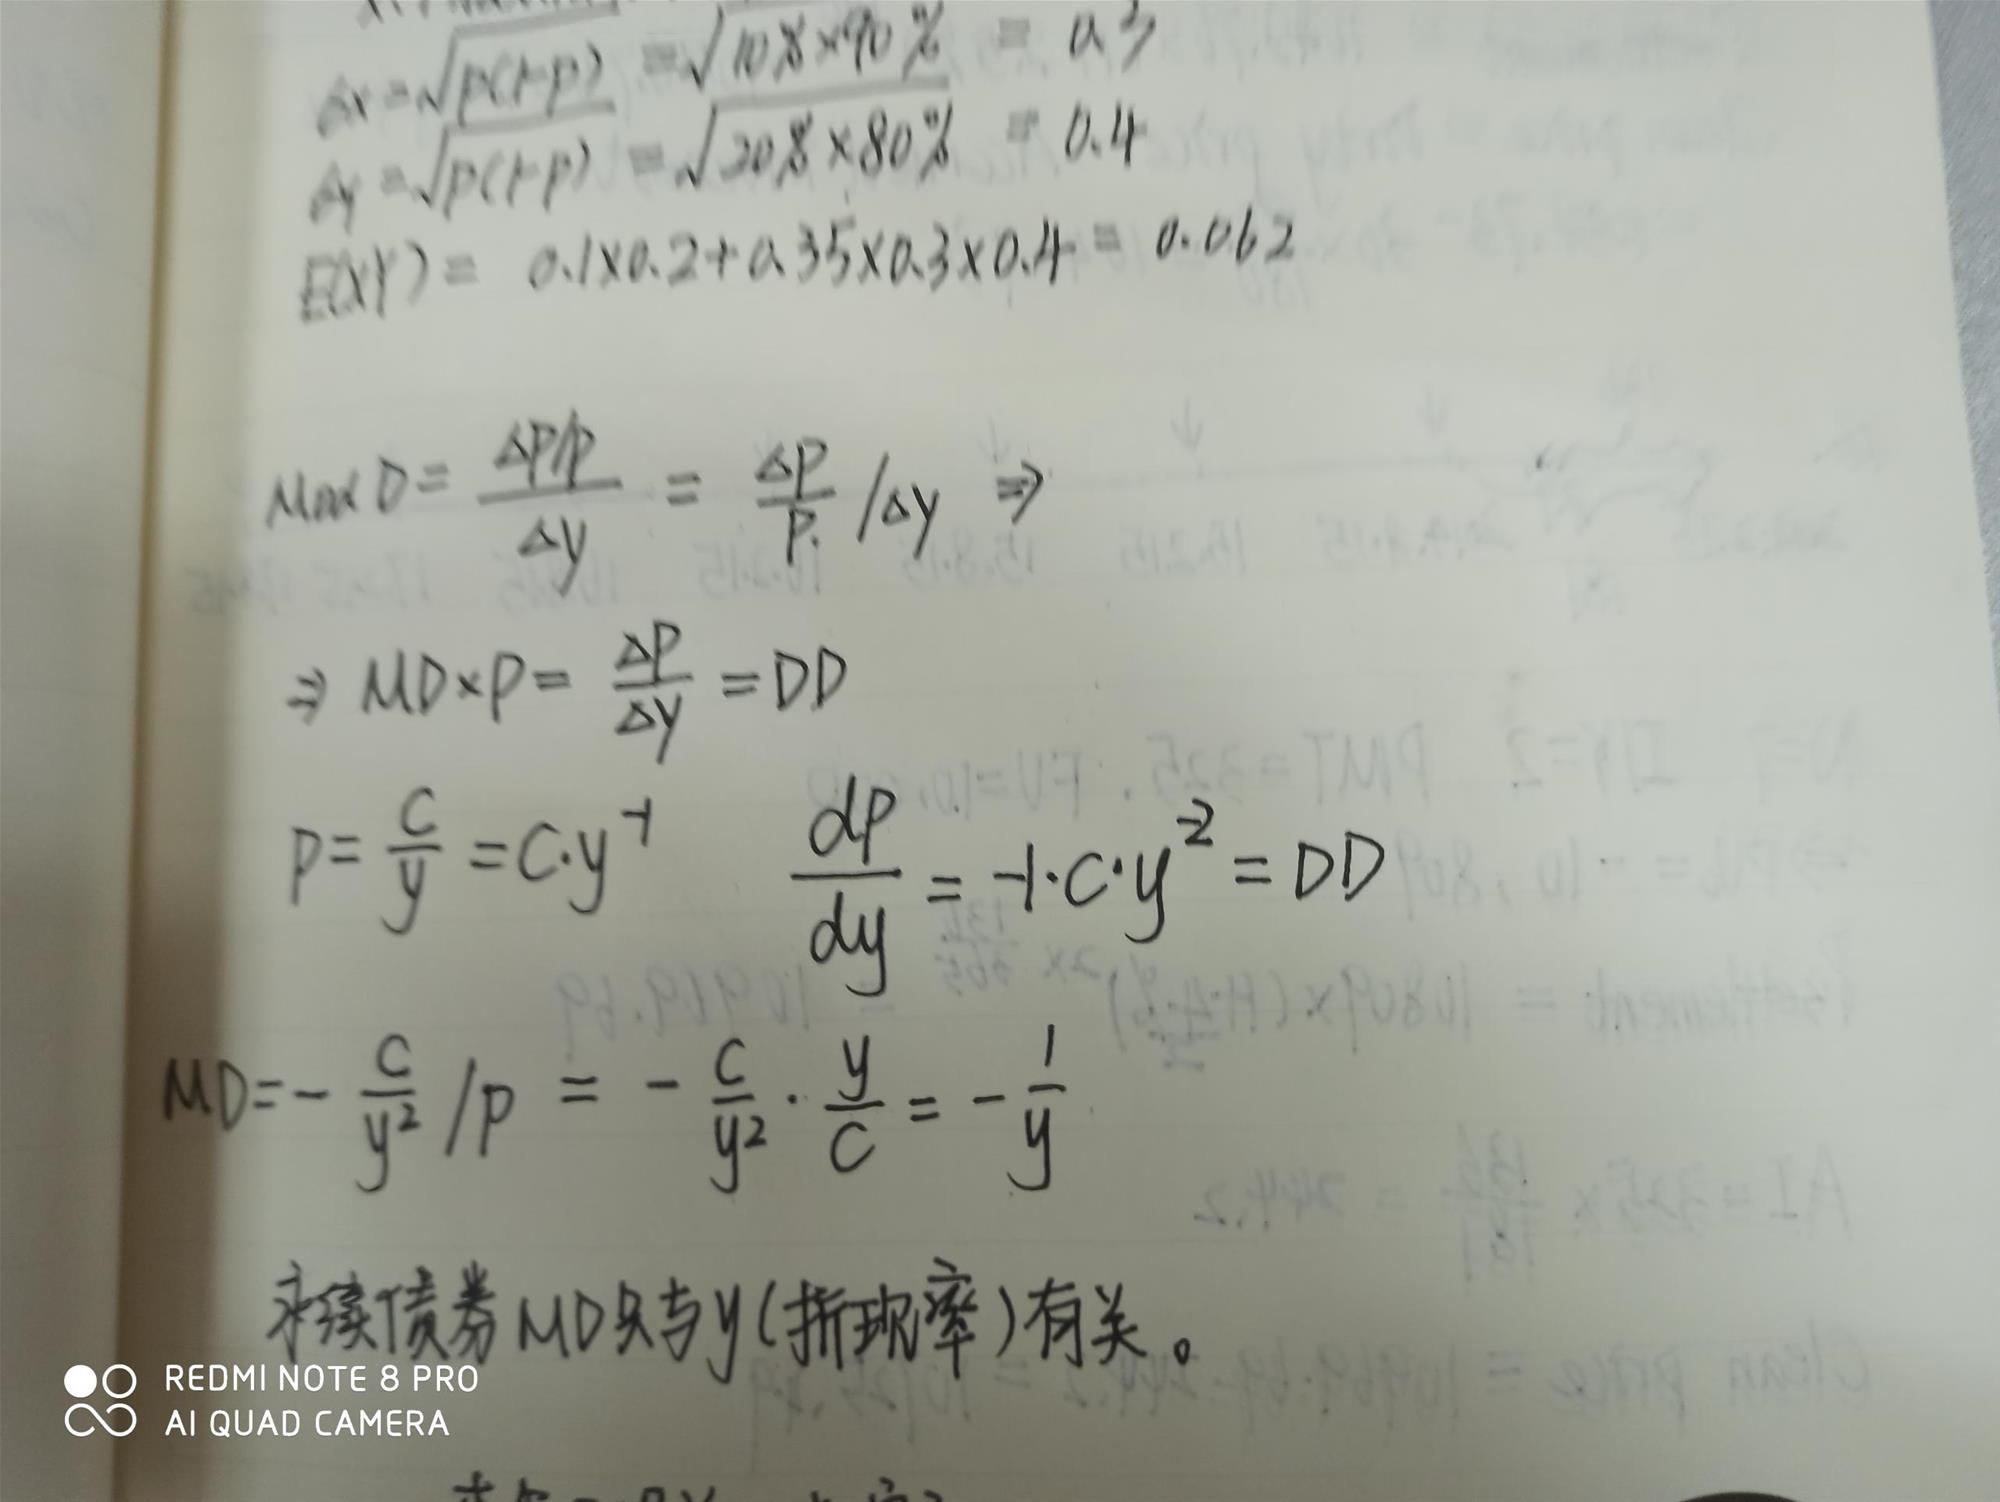 σx=√p(1-p) = √10%×90% = 0.3
σy=√p(1-p) = √20%×80% = 0.4
E(XY) = 0.1×0.2+0.35×0.3×0.4 = 0.062
Mod D = ΔP/P / Δy = ΔP/P /Δy ⇒
⇒ MD×P = ΔP/Δy = DD
P = C/y = C·y⁻¹ dP/dy = -1·C·y⁻² = DD
MD = - C/y² /P = - C/y² · y/C = - 1/y
永续债券MD只与y(折现率)有关。
REDMI NOTE 8 PRO
AI QUAD CAMERA